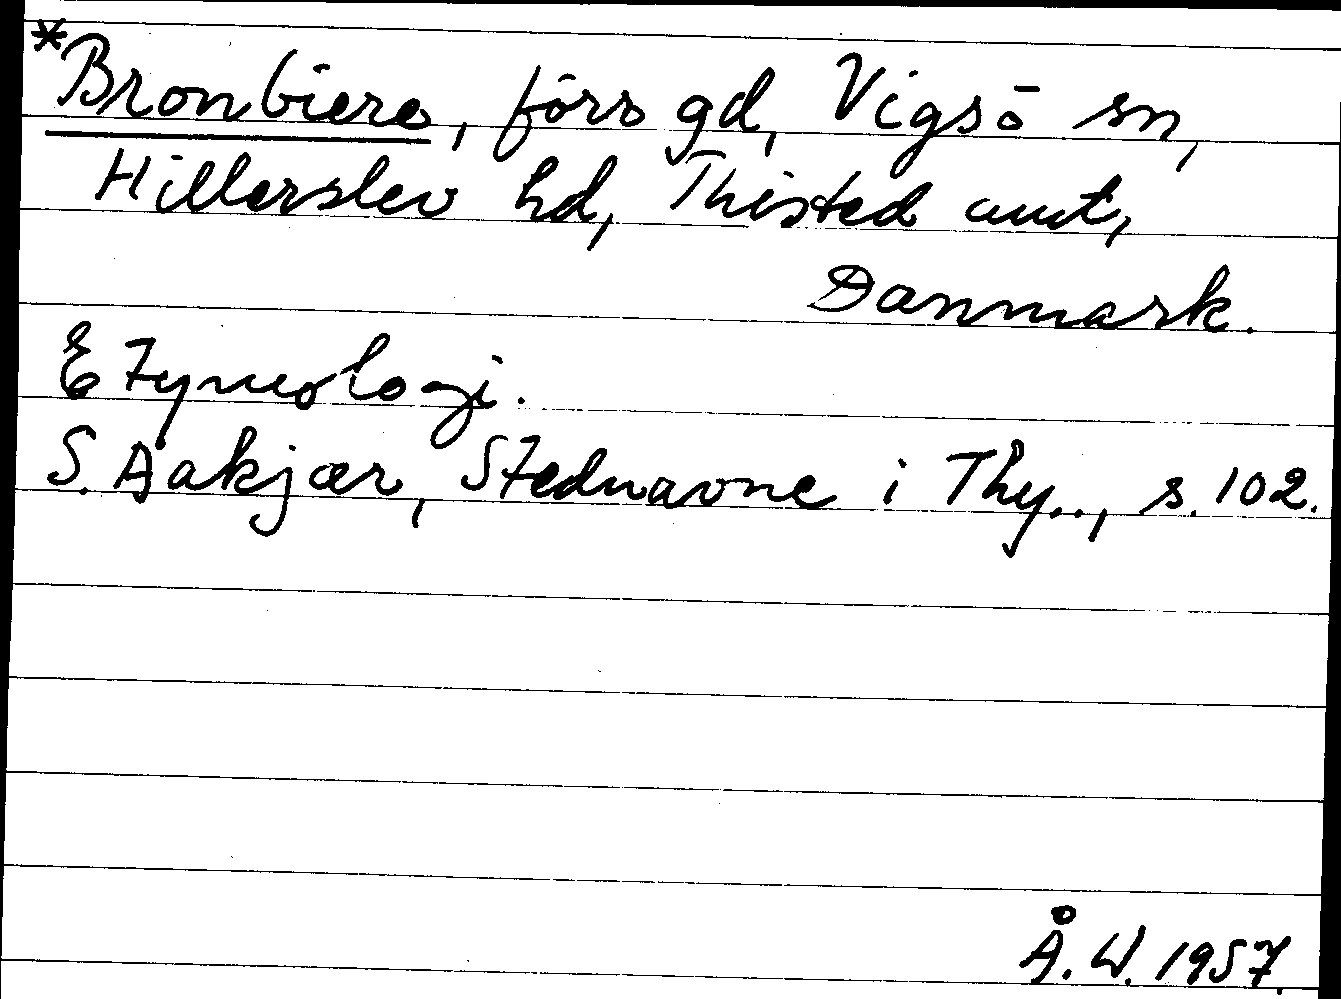 *Bronbiere, förr gd, Vigsö sn,
Hillerslev hd, Thisted amt,
Danmark.
Etymologi.
S. Aakjær, Stednavne i Thy.., s. 102.
Å. W. 1957.